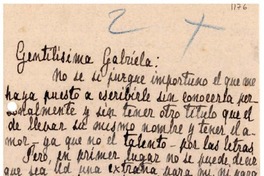 1176
2 X
Gentilísima Gabriela:
No se si juzgue importuno el que me
haya puesto a escribirle sin conocerla per-
sonalmente y sin tener otro título que el
de llevar su mismo nombre y tener el a-
mor - ya que no el talento - por las letras
Pero, en primer lugar no se puede decir
que sea Ud una extraña para mi, ni